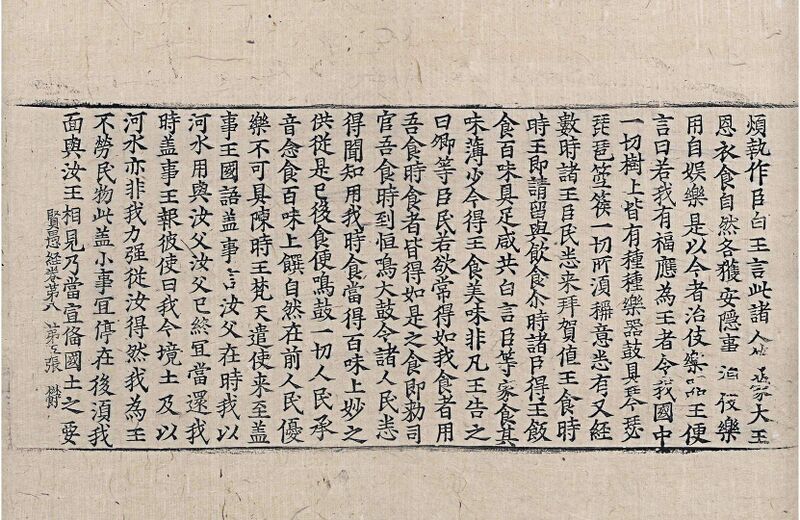 煩執作臣白王言此諸人 蒙大王
恩衣食自然各獲安隱事 治伎樂
用自娛樂是以今者治伎樂器王便
言曰若我有福應為王者令我國中
一切樹上皆有種種樂器鼓具琴瑟
琵琶箜篌一切所須稱意悉有又經
數時諸王臣民悉来拜賀值王食時
時王即請留與飲食亦時諸臣得王飯
食百味具足咸共白言臣等家食其
味薄少今得王食美味非凡王告之
曰卿等臣民若欲常得如我食者用
吾食時食者皆得如是之食即勑司
官吾食時到恒鳴大鼓令諸人民悉
得聞知用我時食當得百味上妙之
供從是已後食便鳴鼓一切人民承
音念食百味上饌自然在前人民優
樂不可具陳時王梵天遣使来至盖
事王國語盖事言汝父在時我以
河水用與汝父汝父已終冝當還我
時盖事王報彼使曰我今境土及以
河水亦非我力强從汝得然我為王
不勞民物此盖小事冝停在後須我
面與汝王相見乃當宣俻國土之要
賢愚經卷第八 第五張 欝